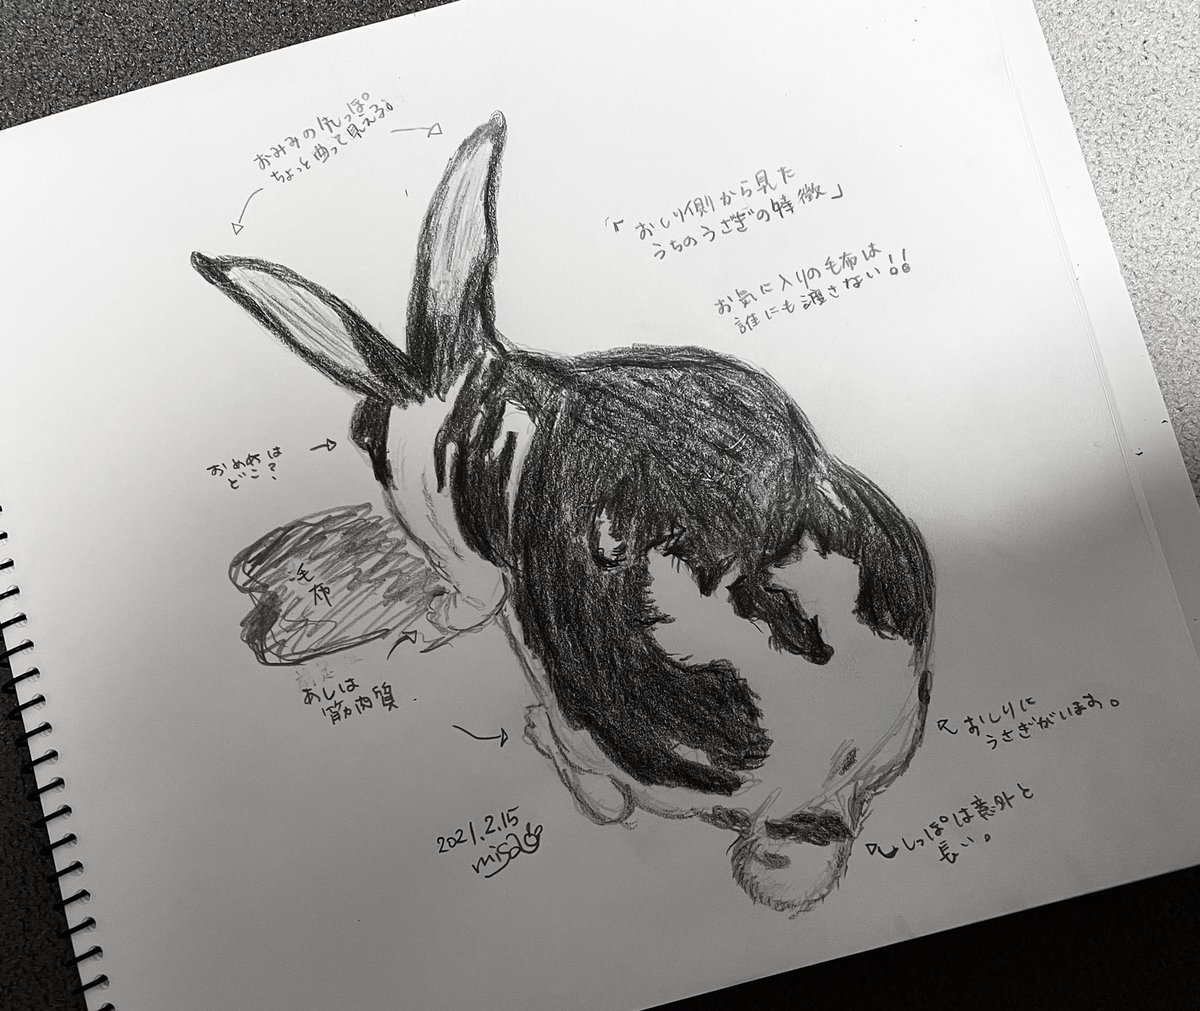 おみみの先っぽ
ちょっと曲って見える。
「おしり側から見た
うちのうさぎの特徴」
お気に入りの毛布は
誰にも渡さない!!
おめめは
どこ?
毛
布
あしは
筋肉質
おしりに
うさぎがいます。
しっぽは意外と
長い。
2021.2.15
misao